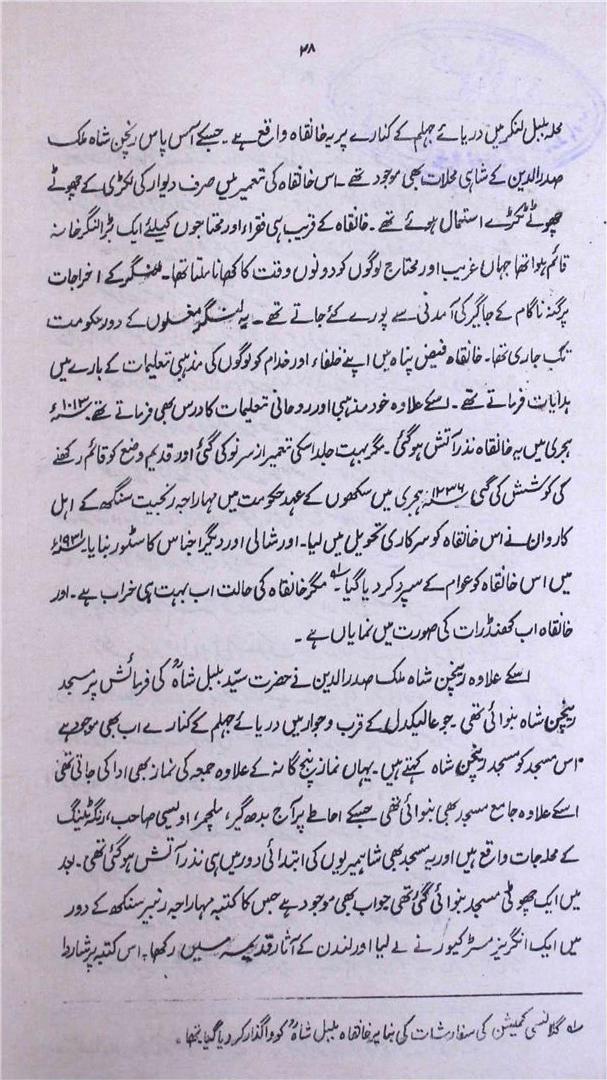 ۳۸
محلہ بلبل لنگر میں دریائے جہلم کے کنارے پر یہ خانقاہ واقع ہے۔ جسکے آس پاس رنچن شاہ ملک
صدرالدین کے شاہی محلات بھی موجود تھے۔ اس خانقاہ کی تعمیر میں صرف دیوار کی لکڑی کے چھوٹے
چھوٹے ٹکڑے استمال ہوئے تھے۔ خانقاہ کے قریب ہی فقراء اور محتاجوں کیلئے ایک بڑا لنگر خانہ
قائم ہوا تھا جہاں غریب اور محتاج لوگوں کو دونوں وقت کا کھانا ملتا تھا۔ لنگر کے اخراجات
پرگنہ ناگام کے جاگیر کی آمدنی سے پورے کئے جاتے تھے۔ یہ لنگر مغلوں کے دور حکومت
تک جاری تھا۔ خانقاہ فیض پناہ میں اپنے خلفاء اور خدام کو لوگوں کی مذہبی تعلیمات کے بارے میں
ہدایات فرماتے تھے۔ اسکے علاوہ خود مذہبی اور روحانی تعلیمات کا درس بھی فرماتے تھے ۱۰۱۳ء
ہجری میں یہ خانقاہ نذر آتش ہوگئی۔ مگر بہت جلد اسکی تعمیر از سر نو کی گئی اور قدیم وضع کو قائم رکھنے
کی کوشش کی گئی ۱۲۳۶ ہجری میں سکھوں کے عہد حکومت میں مہاراجہ رنجیت سنگھ کے اہل
کاروان نے اس خانقاہ کو سرکاری تحویل میں لیا۔ اور شالی اور دیگر اجناس کا سٹور بنایا۔ ۱۹۳۱ء
میں اس خانقاہ کو عوام کے سپرد کر دیا گیا۔ مگر خانقاہ کی حالت اب بہت ہی خراب ہے۔ اور
خانقاہ اب کھنڈرات کی صورت میں نمایاں ہے۔
اسکے علاوہ رینچن شاہ ملک صدرالدین نے حضرت سیّد بلبل شاہؒ کی فرمائش پر مسجد
رینچن شاہ بنوائی تھی۔ جو عالیکدل کے قرب و جوار میں دریائے جہلم کے کنارے اب بھی موجود ہے
اس مسجد کو مسجد رینچن شاہ کہتے ہیں۔ یہاں نماز پنج گانہ کے علاوہ جمعہ کی نماز بھی ادا کی جاتی تھی
اسکے علاوہ جامع مسجد بھی بنوائی تھی جسکے احاطے پر آج بدھ گیر، ملچر، اویسی صاحب، رنگہ ٹینگ
کے محلہ جات واقع ہیں اور یہ مسجد بھی شاہمیریوں کی ابتدائی دور میں ہی نذر آتش ہوگئی تھی۔ بعد
میں ایک چھوٹی مسجد بنوائی گئی تھی جو اب بھی موجود ہے جس کا کتبہ مہاراجہ رنبیر سنگھ کے دور
میں ایک انگریز مسٹر کیور نے لے لیا اور لندن کے آثار قدیمہ میں رکھا۔ اس کتبہ پر شاردا
۱؎ گلانسی کمیشن کی سفارشات کی بنا پر خانقاہ بلبل شاہؒ کو واگذار کر دیا گیا تھا۔